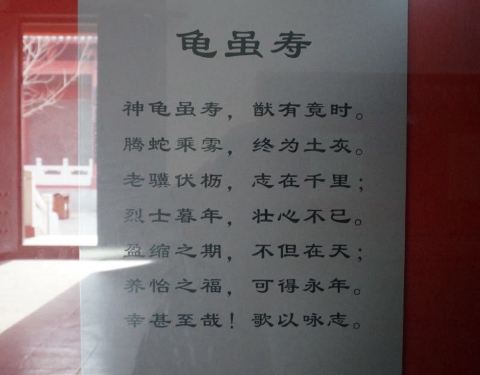 龟虽寿
神龟虽寿，猷有竞时。
腾蛇乘雾，终为土灰。
老骥伏枥，志在千里；
烈士暮年，壮心不已。
盈缩之期，不但在天；
养怡之福，可得永年。
幸甚至哉！歌以咏志。